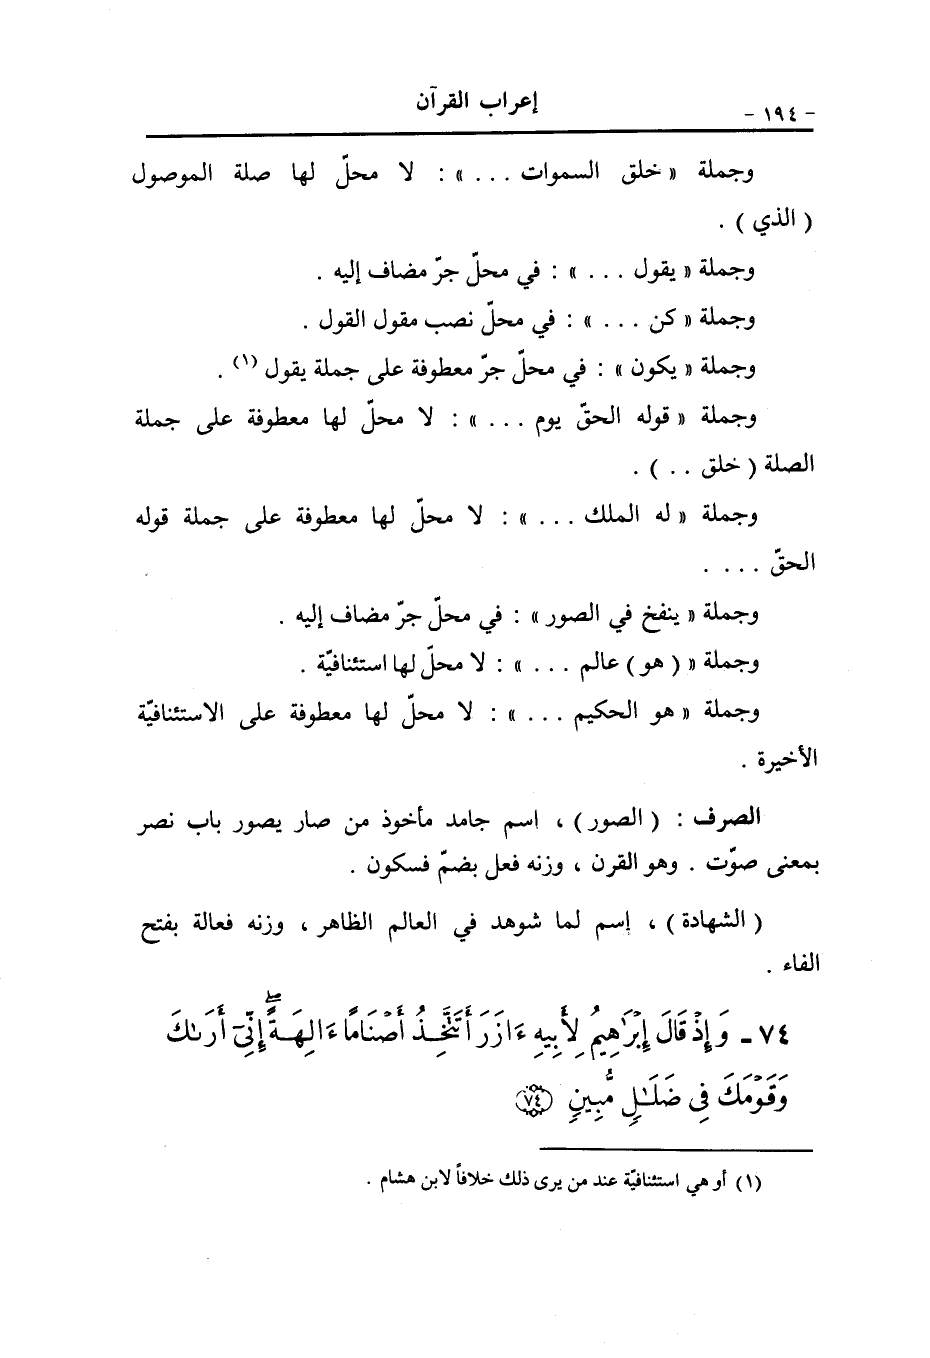 - ١٩٤ -
إعراب القرآن
وجملة « خلق السموات . . . » : لا محلّ لها صلة الموصول
( الذي ) .
وجملة « يقول . . . » : في محلّ جرّ مضاف إليه .
وجملة « كن . . . » : في محلّ نصب مقول القول .
وجملة « يكون » : في محلّ جرّ معطوفة على جملة يقول (١) .
وجملة « قوله الحقّ يوم . . . » : لا محلّ لها معطوفة على جملة
الصلة ( خلق . . ) .
وجملة « له الملك . . . » : لا محلّ لها معطوفة على جملة قوله
الحقّ . . . .
وجملة « ينفخ في الصور » : في محلّ جرّ مضاف إليه .
وجملة « ( هو ) عالم . . . » : لا محلّ لها استئنافيّة .
وجملة « هو الحكيم . . . » : لا محلّ لها معطوفة على الاستئنافيّة
الأخيرة .
الصرف : ( الصور ) ، اسم جامد مأخوذ من صار يصور باب نصر
بمعنى صوّت . وهو القرن ، وزنه فعل بضمّ فسكون .
( الشهادة ) ، إسم لما شوهد في العالم الظاهر ، وزنه فعالة بفتح
الفاء .
٧٤ - وَإِذْ قَالَ إِبْرَٰهِيمُ لِأَبِيهِ ءَازَرَ أَتَتَّخِذُ أَصْنَامًا ءَالِهَةً ۖ إِنِّىٓ أَرَىٰكَ
وَقَوْمَكَ فِى ضَلَٰلٍ مُّبِينٍ ٧٤
(١) أو هي استئنافيّة عند من يرى ذلك خلافاً لابن هشام .